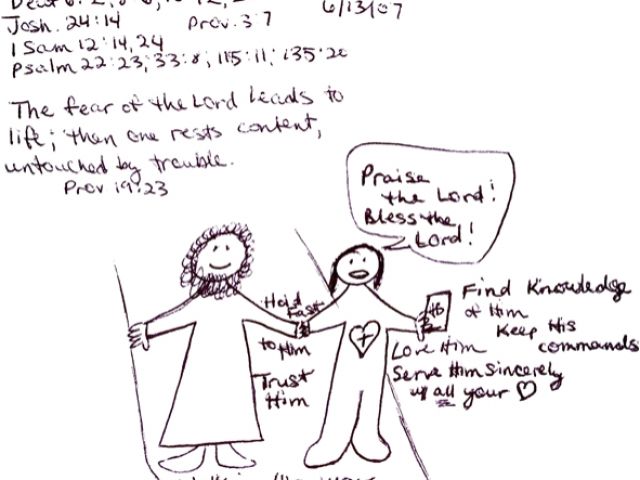 6/13/07
Josh. 24:14 Prov. 3:7
1 Sam 12:14,24
Psalm 22:23; 33:8; 115:11; 135:20
The fear of the Lord leads to
life; then one rests content,
untouched by trouble.
Prov 19:23
Praise
the Lord!
Bless the
Lord!
Hold
Fast
to Him
Trust
Him
HB
Find Knowledge
of Him
Keep His
commands
Love Him
Serve Him sincerely
w/ all your ♡